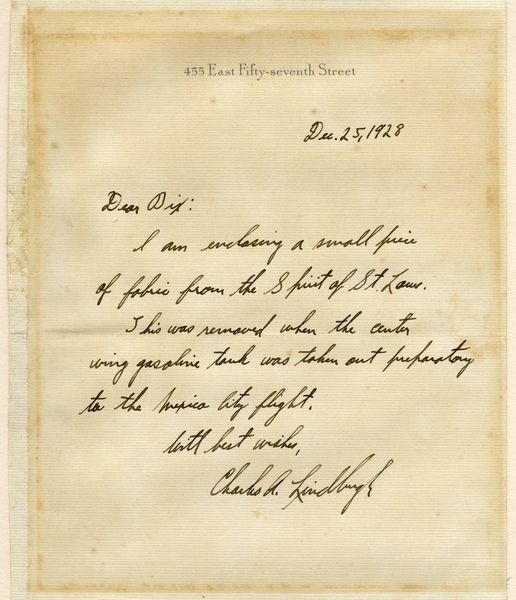 455 East Fifty-seventh Street
Dec. 25, 1928
Dear Dix:
I am enclosing a small piece
of fabric from the Spirit of St. Louis.
This was removed when the center
wing gasoline tank was taken out preparatory
to the Mexico City flight.
With best wishes,
Charles A. Lindbergh